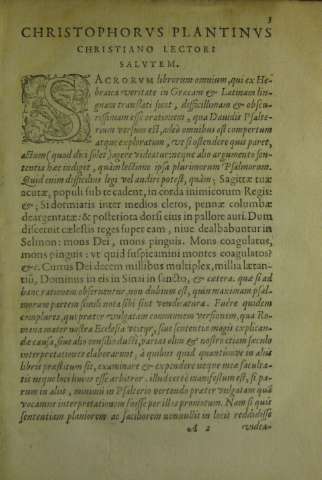 3
CHRISTOPHORVS PLANTINVS
CHRISTIANO LECTORI
SALVTEM.
SACRORVM librorum omnium, qui ex He-
braica veritate in Græcam & Latinam lin-
guam translati sunt, difficillimam & obscu-
rissimam esse orationem, qua Dauidis Psalte-
rium versum est, adeò omnibus est compertum
atque exploratum, vt si ostendere quis paret,
actum (quod dici solet) agere videatur: neque alio argumento sen-
tentia hæc indiget, quàm lectione ipsa plurimorum Psalmorum.
Quid enim difficilius legi vel audiri potest, quàm; Sagittæ tuæ
acutæ, populi sub te cadent, in corda inimicorum Regis:
&; Si dormiatis inter medios cleros, pennæ columbæ
deargentatæ: & posteriora dorsi eius in pallore auri. Dum
discernit cælestis reges super eam, niue dealbabuntur in
Selmon: mons Dei, mons pinguis. Mons coagulatus,
mons pinguis: vt quid suspicamini montes coagulatos?
&; Currus Dei decem millibus multiplex, millia lætan-
tiũ, Dominus in eis in Sina in sancto, & cætera. quæ si ad
hanc rationem obseruentur, non dubium est, quin maximam psal-
morum partem similis nota sibi sint vendicatura. Fuêre quidem
complures, qui præter vulgatam communem versionem, qua Ro-
mana mater nostra Ecclesia vtitur, siue sententiæ magis explican-
dæ causa, siue alio consilio ducti, varias olim & nostra etiam sæculo
interpretationes elaborarint, à quibus quid quantumue in aliis
libris præstitum sit, examinare & expendere neque meæ faculta-
tis neque loci huius esse arbitror. illud certè manifestum est, si pa-
rum in aliis, minimũ in Psalterio vertendo præter vulgatam quã
vocamus interpretationem fuisse per illos promotum. Nam si quis
sententiam planiorem ac faciliorem nonnullis in locis reddidisse
A 2 videa-